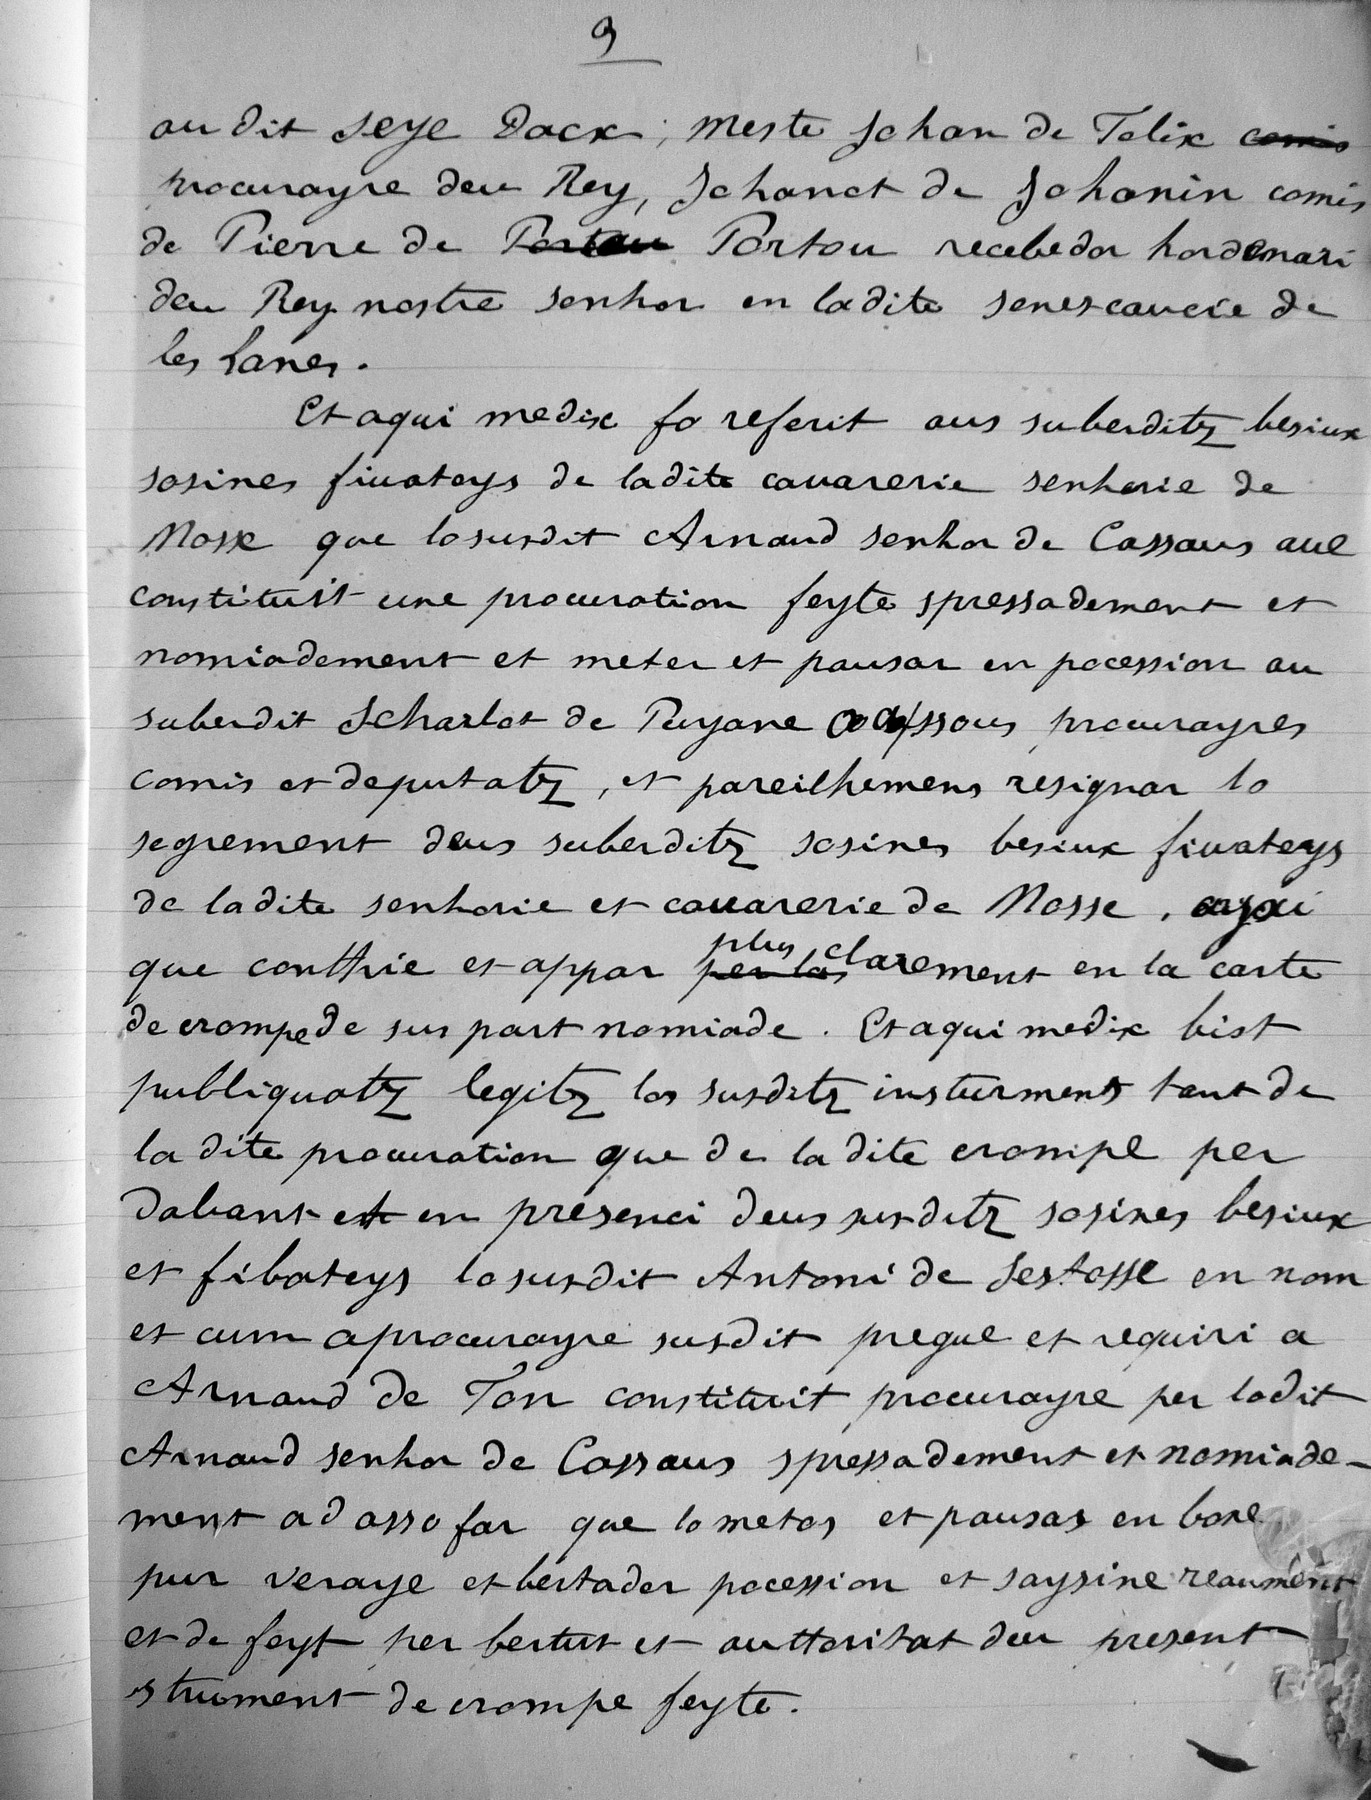 9
au dit seye Dacx, meste Johan de Felix comis
procurayre deu Rey, Johanet de Johanin comis
de Pierre de Portau Portou recebedor hordenari
deu Rey nostre senhor en ladite senescaucie de
les lanes.
Et aqui medix fo referit aus suberditz besiux
sosines fiuateys de ladite cauarerie senhorie de
Nosse que losusdit Arnaud senhor de Cassaus aue
constituit une procuration feyte spressadement et
nomiadement et meter et pausar en pocession au
suberdit Scharlot de Puyane procurayres
comis et deputatz, et pareilhemens resignar lo
segrement deus suberditz sosines besiux fiuateys
de ladite senhorie et cauarerie de Nosse, ayxi
que conthie et appar per las plus clarement en la carte
de crompe de sus part nomiade. Et aqui medix bist
publiquatz legitz los susditz insturments tant de
la dite procuration que de la dite crompe per
dabant et en presenci deus susditz sosines besiux
et fibateys losusdit Antoni de Sestosse en nom
et cum a procurayre susdit pregue et requiri a
Arnaud de Ton constituit procurayre per lodit
Arnaud senhor de Cassaus spressadement et nomiade-
ment ad asso far que lo metos et pausas en bone
pur veraye et bertader pocession et saysine reaument
et de feyt per bertut et auttoritat deu present
strument de crompe feyte.